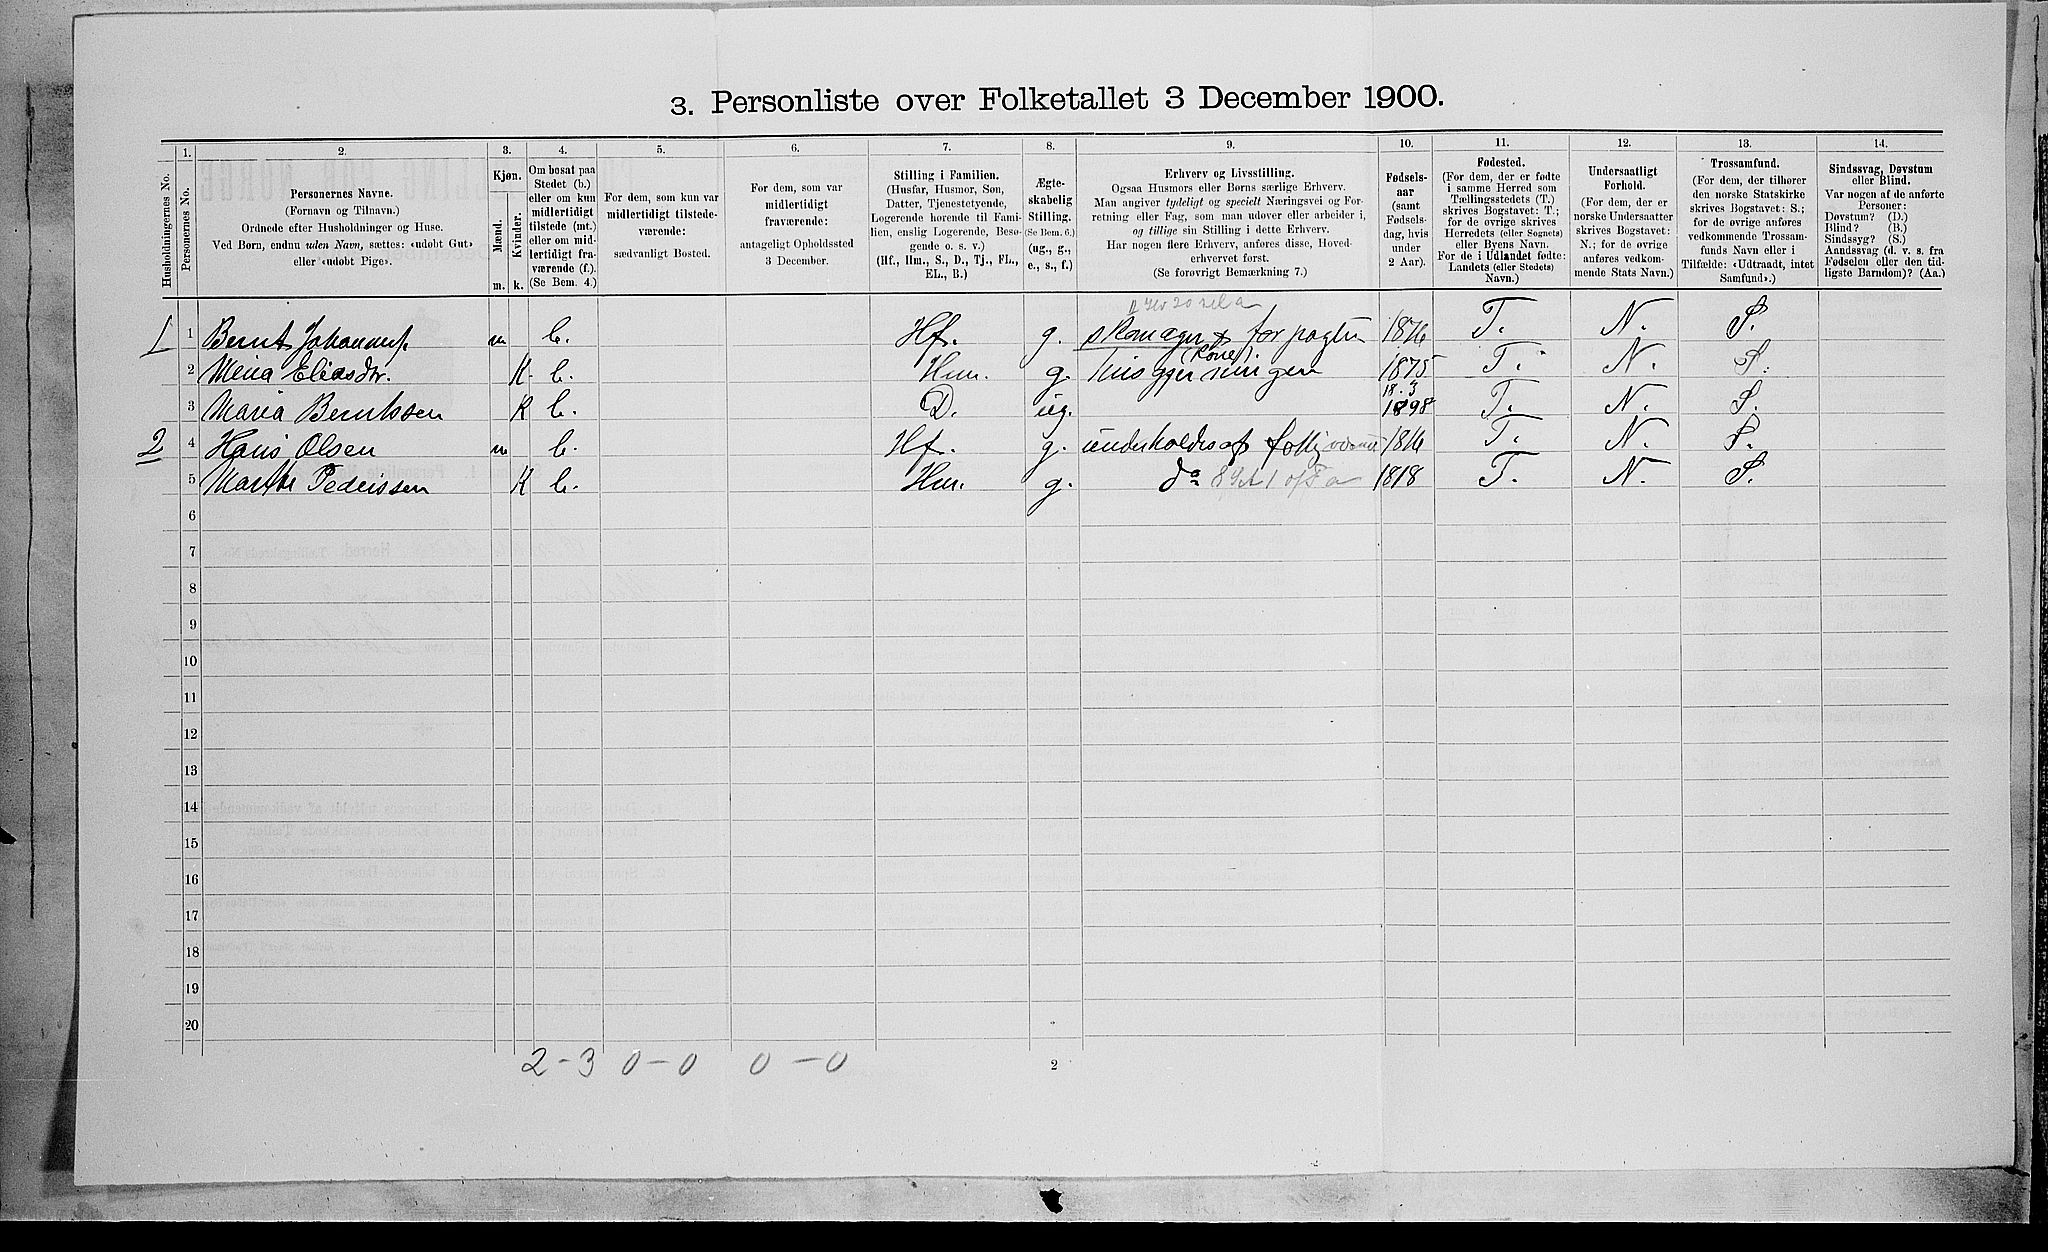 3. Personliste over Folketallet 3 December 1900.
Husholdningernes No.
1.
Personernes No.
2.
Personernes Navne.
(Fornavn og Tilnavn.)
Ordnede efter Husholdninger og Huse.
Ved Børn, endnu uden Navn, sættes: «udøbt Gut»
eller «udøbt Pige».
3.
Kjøn.
Mænd.
Kvinder.
m.
k.
4.
Om bosat paa
Stedet (b.)
eller om kun
midlertidigt
tilstede (mt.)
eller om mid-
lertidigt fra-
værende (f.).
(Se Bem. 4.)
5.
For dem, som kun var
midlertidigt tilstede-
værende:
sædvanligt Bosted.
6.
For dem, som var
midlertidigt
fraværende:
antageligt Opholdssted
3 December.
7.
Stilling i Familien.
(Husfar, Husmor, Søn,
Datter, Tjenestetyende,
Logerende hørende til Fami-
lien, enslig Logerende, Besø-
gende o. s. v.)
(Hf., Hm., S., D., Tj., FL.,
EL., B.)
8.
Ægte-
skabelig
Stilling.
(Se Bem. 6.)
(ug., g.,
e., s., f.)
9.
Erhverv og Livsstilling.
Ogsaa Husmors eller Børns særlige Erhverv.
Man angiver tydeligt og specielt Næringsvei og For-
retning eller Fag, som man udover eller arbeider i,
og tillige sin Stilling i dette Erhverv.
Har nogen flere Erhverv, anføres disse, Hoved-
erhvervet først.
(Se forøvrigt Bemærkning 7.)
10.
Fødsels-
aar
(samt
Fødsels-
dag, hvis
under
2 Aar).
11.
Fødested.
(For dem, der er fødte
i samme Herred som
Tællingsstedets (T.)
skrives Bogstavet: T.;
for de øvrige skrives
Herredets (eller Sognets)
eller Byens Navn.
For de i Udlandet fødte:
Landets (eller Stedets)
Navn.)
12.
Undersaatligt
Forhold.
(For dem, der er
norske Undersaatter
skrives Bogstavet:
N.; for de øvrige
anføres vedkom-
mende Stats Navn.)
13.
Trossamfund.
(For dem, der tilhører
den norske Statskirke
skrives Bogstavet: S.;
for de øvrige anføres
vedkommende Trossam-
funds Navn eller i
Tilfælde: «Udtraadt, intet
Samfund».)
14.
Sindssvag, Døvstum
eller Blind.
Var nogen af de anførte
Personer:
Døvstum? (D.)
Blind? (B.)
Sindssyg? (S.)
Aandssvag (d. v. s. fra
Fødselen eller den tid-
ligste Barndom)? (Aa.)
1 1 Bernt Johannes. m b. Hf. g. skomager & forpagter 1876 T. N. S.
2 Mina Eliasdr. K. b. Hm. g. (Kone) 1875 T. N. S.
18.3
3 Maria Berntssen K b. D. ug. 1898 T. N. S.
2 4 Hans Olsen m b. Hf. g. underholdes af 1816 T. N. S.
5 Marthe Pederssen K b. Hm. g. do 1818 T. N. S.
6
7
8
9
10
11
12
13
14
15
16
17
18
19
20
2 - 3 0 - 0 0 - 0
2